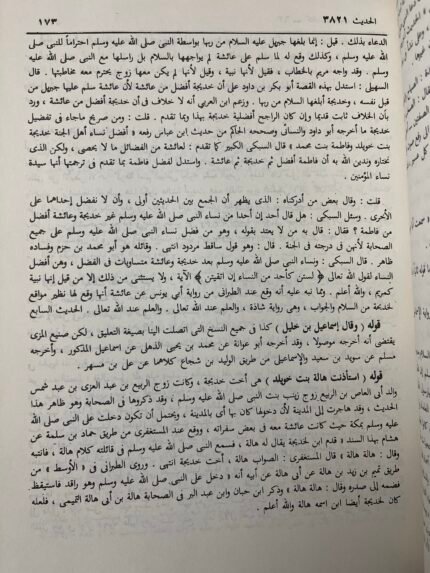 الحديث ٣٨٢١ ١٧٣
الدعاء بذلك . قيل : إنما بلغها جبريل عليه السلام من ربها بواسطة النبى صلى الله عليه وسلم احتراما للنبى صلى
الله عليه وسلم ، وكذلك وقع له لما سلم على عائشة لم يواجهها بالسلام بل راسلها مع النبى صلى الله عليه
وسلم . وقد واجه مريم بالخطاب ، فقيل لأنها نبية ، وقيل لأنها لم يكن معها زوج يحترم معه مخاطبتها . قال
السهيلى : استدل بهذه القصة أبو بكر بن داود على أن خديجة أفضل من عائشة لأن عائشة سلم عليها جبريل من
قبل نفسه ، وخديجة أبلغها السلام من ربها . وزعم ابن العربى أنه لا خلاف فى أن خديجة أفضل من عائشة ، ورد
بأن الخلاف ثابت قديما وإن كان الراجح أفضلية خديجة بهذا وبما تقدم . قلت : ومن صريح ماجاء فى تفضيل
خديجة ما أخرجه أبو داود والنسائى وصححه الحاكم من حديث ابن عباس رفعه « أفضل نساء أهل الجنة خديجة
بنت خويلد وفاطمة بنت محمد » قال السبكى الكبير كما تقدم : لعائشة من الفضائل ما لا يحصى ، ولكن الذى
نختاره وندين الله به أن فاطمة أفضل ثم خديجة ثم عائشة . واستدل لفضل فاطمة بما تقدم فى ترجمتها أنها سيدة
نساء المؤمنين .
قلت : وقال بعض من أدركناه : الذى يظهر أن الجمع بين الحديثين أولى ، وأن لا نفضل إحداهما على
الأخرى . وسئل السبكى : هل قال أحد إن أحدا من نساء النبى صلى الله عليه وسلم غير خديجة وعائشة أفضل
من فاطمة ؟ فقال : قال به من لا يعتد بقوله ، وهو من فضل نساء النبى صلى الله عليه وسلم على جميع
الصحابة لأنهن فى درجته فى الجنة . قال : وهو قول ساقط مردود انتهى . وقائله هو أبو محمد بن حزم وفساده
ظاهر . قال السبكى : ونساء النبى صلى الله عليه وسلم بعد خديجة وعائشة متساويات فى الفضل ، وهن أفضل
النساء لقول الله تعالى ﴿ لستن كأحد من النساء إن اتقيتن ﴾ الآية ، ولا يستثنى من ذلك إلا من قيل إنها نبية
كمريم ، والله أعلم . ومما نبه عليه أنه وقع عند الطبرانى من رواية أبى يونس عن عائشة أنها وقع لها نظير ماوقع
لخديجة من السلام والجواب ، وهى رواية شاذة ، والعلم عند الله تعالى . والعلم عند الله تعالى . الحديث السابع
قوله ( وقال إسماعيل بن خليل ) كذا فى جميع النسخ التى اتصلت الينا بصيغة التعليق ، لكن صنيع المزى
يقتضى أنه أخرجه موصولا ، وقد أخرجه أبو عوانة عن محمد بن يحيى الذهلى عن اسماعيل المذكور ، وأخرجه
مسلم عن سويد بن سعيد والإسماعيلى من طريق الوليد بن شجاع كلاهما عن على بن مسهر .
قوله ( استأذنت هالة بنت خويلد ) هى أخت خديجة ، وكانت زوج الربيع بن عبد العزى بن عبد شمس
والد أبى العاص بن الربيع زوج زينب بنت النبى صلى الله عليه وسلم ، وقد ذكروها فى الصحابة وهو ظاهر هذا
الحديث ، وقد هاجرت إلى المدينة لأن دخولها كان بها أى بالمدينة ، ويحتمل أن تكون دخلت على النبى صلى الله
عليه وسلم بمكة حيث كانت عائشة معه فى بعض سفراته ، ووقع عند المستغفرى من طريق حماد بن سلمة عن
هشام بهذا السند « قدم ابن لخديجة يقال له هالة ، فسمع النبى صلى الله عليه وسلم فى قائلته كلام هالة ، فانتبه
وقال : هالة هالة » قال المستغفرى : الصواب هالة ، أخت خديجة انتهى . وروى الطبرانى فى « الأوسط » من
طريق تميم بن زيد بن هالة عن أبى هالة عن أبيه أنه « دخل على النبى صلى الله عليه وسلم وهو راقد فاستيقظ
فضمه إلى صدره وقال : هالة هالة » وذكر ابن حبان وابن عبد البر فى الصحابة هالة بن أبى هالة التميمى ، فلعله
كان لخديجة أيضا ابن اسمه هالة والله أعلم .